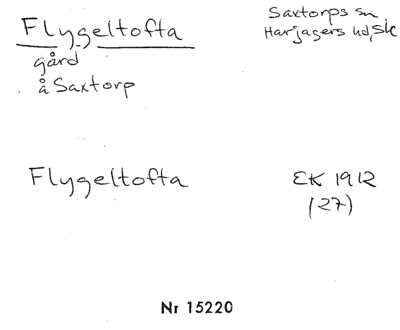 Flygeltofta
gård
å Saxtorp
Saxtorps sn
Harjagers hd, Sk
Flygeltofta
EK 1912
(27)
Nr 15220